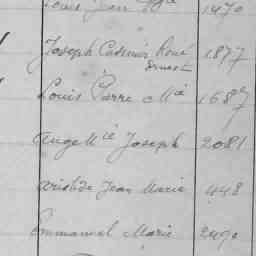 Louis Jean 1470
Joseph Casimir René 1877
Ernest
Louis Pierre Mie 1687
Ange Mie Joseph 2081
Aristide Jean Marie 448
Emmanuel Marie 2490